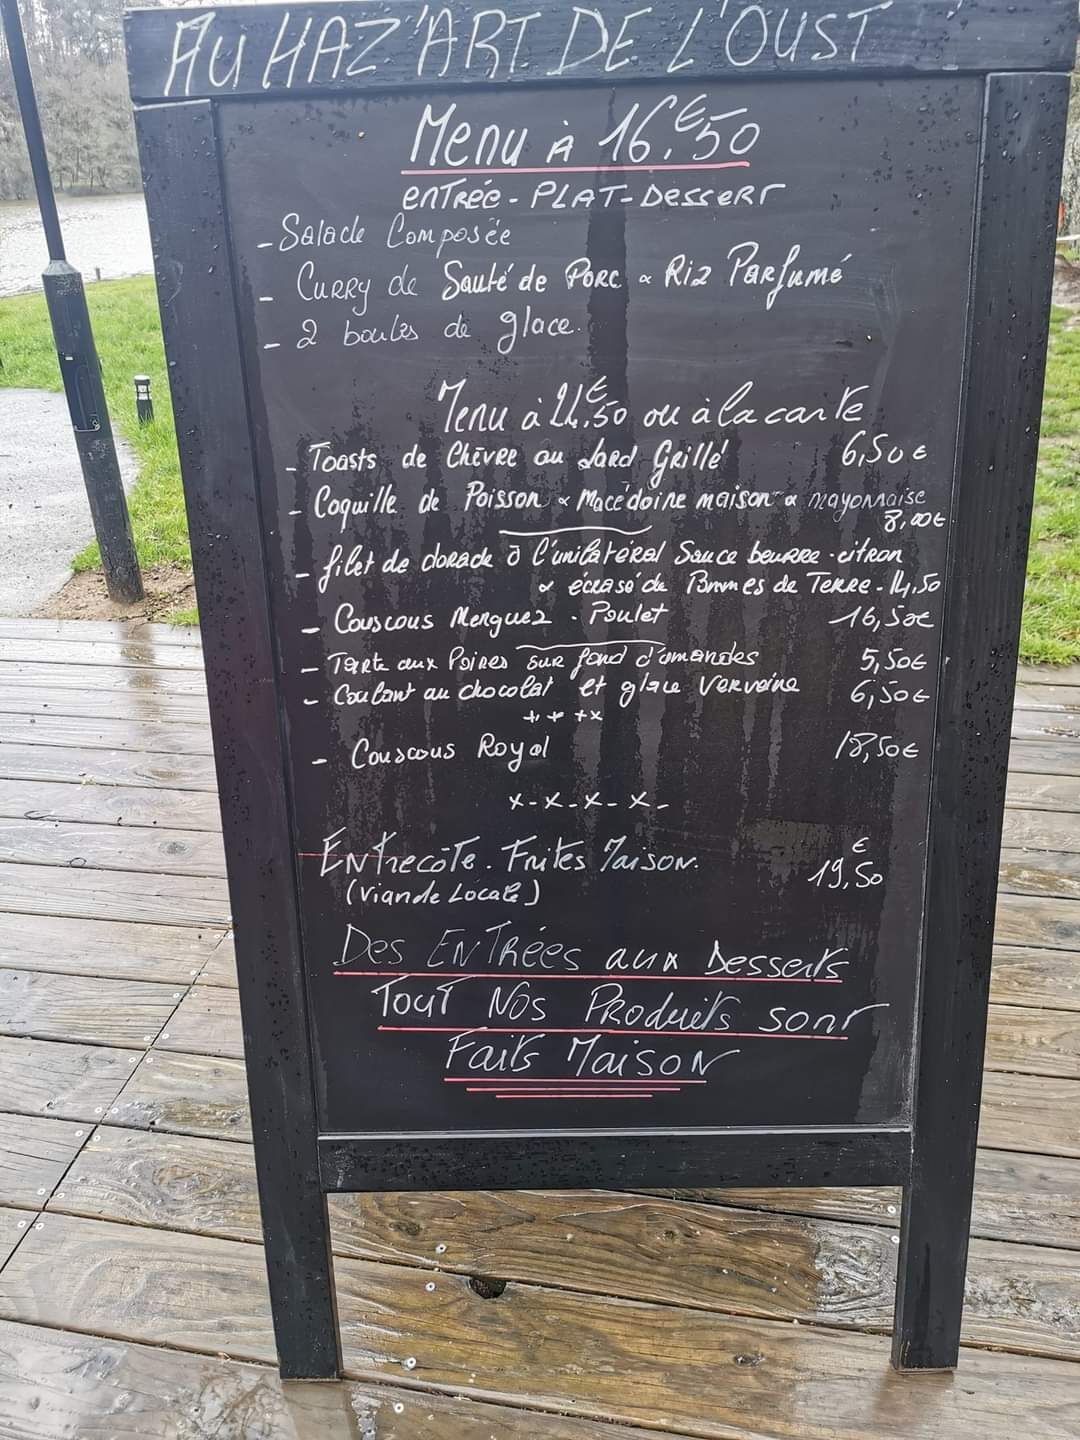 AU HAZ'ART DE L'OUST
Menu à 16€,50
entrée - PLAT - Dessert
- Salade Composée
- Curry de Sauté de Porc & Riz Parfumé
- 2 boules de glace.
Menu à 24€,50 ou à la carte
- Toasts de Chèvre au Lard Grillé 6,50€
- Coquille de Poisson & Macédoine maison & mayonnaise
8,00€
- filet de dorade à l'unilatéral Sauce beurre-citron
& écrasé de Pommes de Terre - 14,50
- Couscous Merguez - Poulet 16,50€
- Tarte aux Poires sur fond d'amandes 5,50€
- Coulant au chocolat et glace Verveine 6,50€
++ + + x
- Couscous Royal 18,50€
x - x - x - x -
Entrecôte - Frites Maison. 19,50€
(Viande Locale)
Des Entrées aux Desserts
Tout Nos Produits sont
Faits Maison